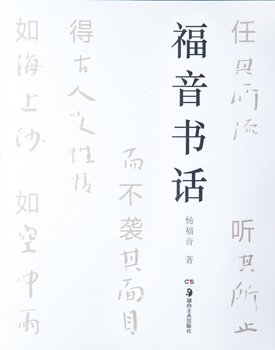 福音书话
杨福音 著
任其所流
听其所止
得古人之性情
而不袭其面目
如海上沙
如空中雨
湖南美术出版社